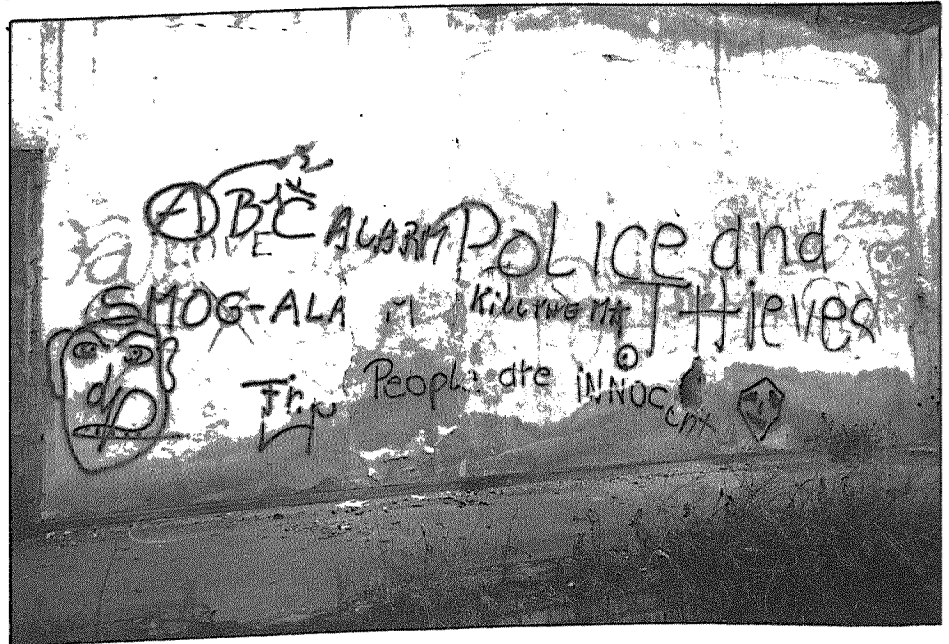 ABC ALARM POLICE and
SMOG-ALA M KILLING THieves
People are iNNOCent